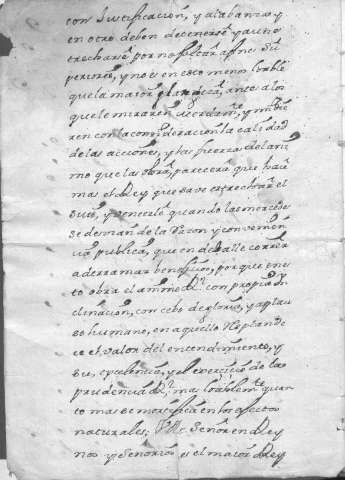 con Justificacion, y alabanza y
en otro deben detenerse y aun
estrecharse por no faltar a fines Su
periores, y no es en esto menos loable
que la maior largueza, antes a los
que lo miraren y midie
ren con la consideracion la calidad
de las acciones, y las fuerças del ani
mo que las obra, parecera que hace
mas el Rey que save estrecharse el
suio, y vencerse quando las mercedes
se desvian de la Raçon y convenien
cia publica, que en dexarse correr
a derramar beneficios, porque en es
to obra el animo Rl. con propia in
clinacion, con cebo de gloria, y aplau
so humano, en aquello Resplande
ce el valor del entendimiento, y
su excelencia, y el exercicio de la
prudencia Rl. mas loable quan
to mas se mortifica en los efectos
naturales; VMd. Señor en Rey
nos y Señorios es el maior Rey